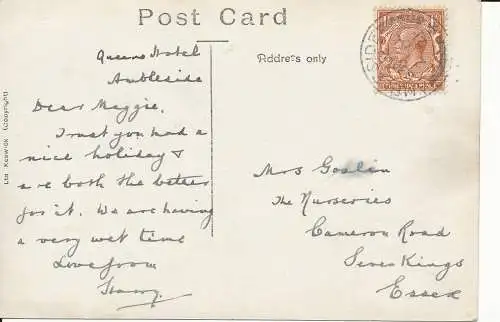 Post Card
Queens Hotel
Ambleside
Address only
Dear Maggie,
I trust you had a
nice holiday &
are both the better
for it. We are having
a very wet time
Love from
Harry
Mrs Goslin
The Nurseries
Cameron Road
Seven Kings
Essex
Ltd Keswick (Copyright)